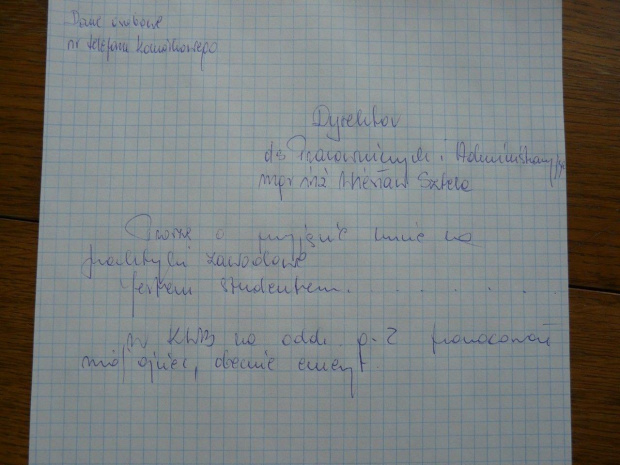 Dane osobowe
nr telefonu kontaktowego
Dyrektor
ds Pracowniczych i
mgr inż Wiesław
Proszę o przyjęcie mnie na
praktykę zawodowe
Jestem studentem . . . . . . . .
w KWB na oddz. p-2 pracował
mój ojciec, obecnie emeryt.